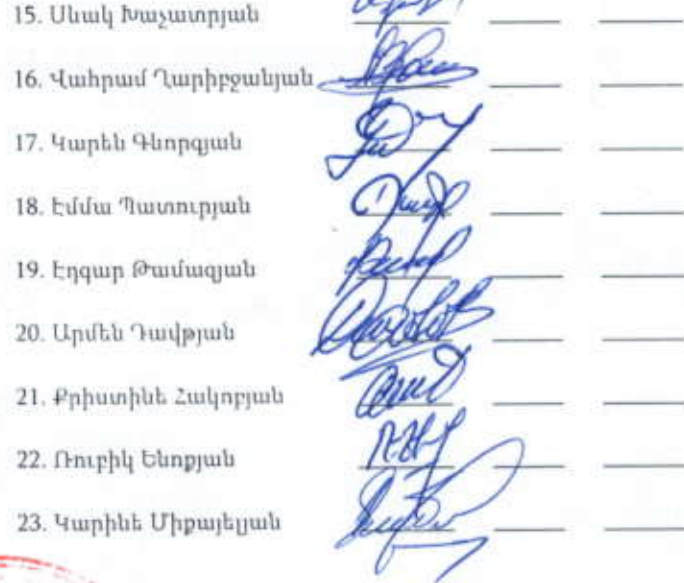 15. Սևակ Խաչատրյան
16. Վահրամ Ղարիբջանյան
17. Կարեն Գևորգյան
18. Էմմա Պատուրյան
19. Էդգար Թամազյան
20. Արմեն Դավթյան
21. Քրիստինե Հակոբյան
22. Ռուբիկ Ենոքյան
23. Կարինե Միքայելյան